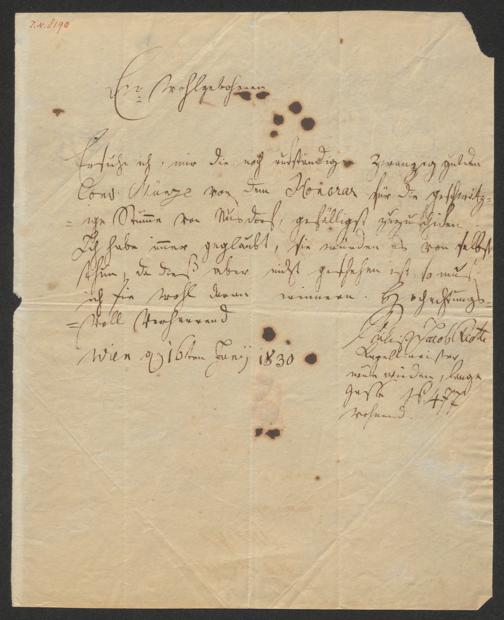 I.N. 8190
Euer Wohlgebohren
Ersuche ich, mir die noch rückständige Zwanzig Gulden
Conv Münze von dem Honorar für die
Stimme von Nusdorf, gefälligst zuzuschicken
Ich habe immer geglaubt, Sie würden es von selbst
thun, da dieß aber nicht geschehen ist, so muß
ich Sie wohl daran erinnern. Hochachtungs-
=voll Verharrend
Wien d 16ten Juny 1830
Jacob
Kapellmeister
auf der Wieden, lange
Gasse N 477
wohnend.